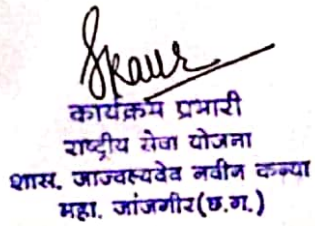 SKaur
कार्यक्रम प्रभारी
राष्ट्रीय सेवा योजना
शास. जाज्वल्यदेव नवीन कन्या
महा. जांजगीर(छ.ग.)